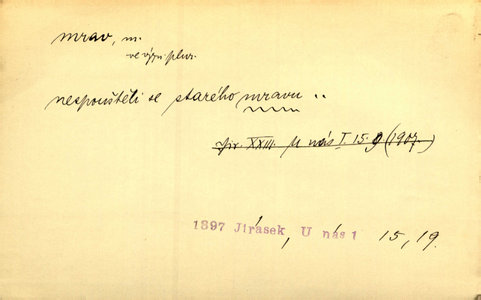 mrav, m.
ve význ. plur.
nespouštěli se starého mravu ..
Jir. XXIII. U nás I. 15.9 (1907.)
1897 Jirásek, U nás 1 15, 19.